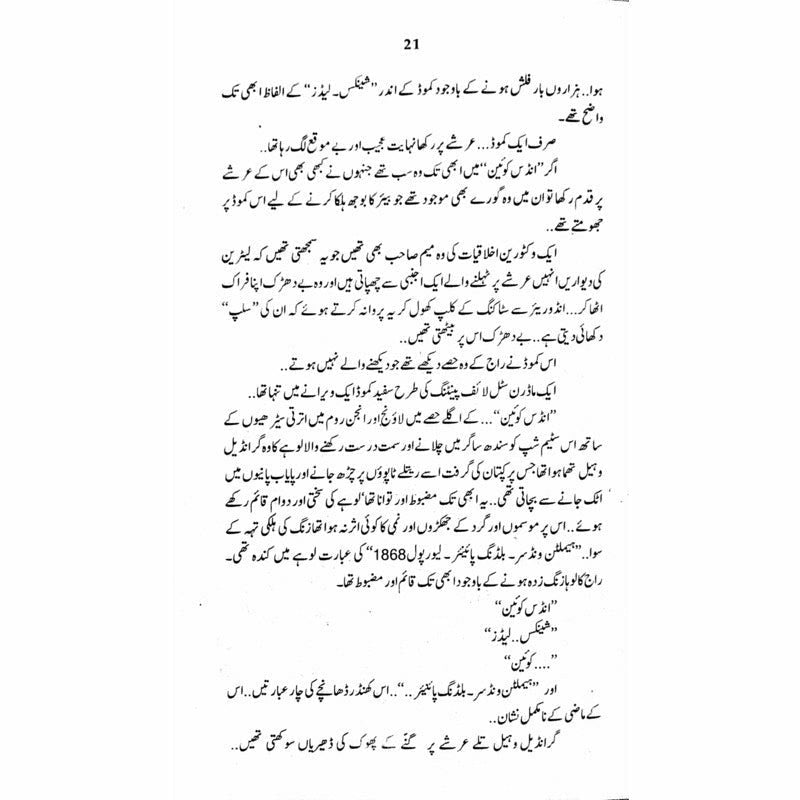 21
ہوا.. ہزاروں بار فلش ہونے کے باوجود کموڈ کے اندر ”شینکس۔ لیڈز“ کے الفاظ ابھی تک
واضح تھے۔
صرف ایک کموڈ... عرشے پر رکھا نہایت عجیب اور بے موقع لگ رہا تھا..
اگر ”انڈس کوئین“ میں ابھی تک وہ سب تھے جنہوں نے کبھی بھی اس کے عرشے
پر قدم رکھا تو ان میں وہ گورے بھی موجود تھے جو بیئر کا بوجھ ہلکا کرنے کے لیے اس کموڈ پر
جھومتے تھے..
ایک وکٹورین اخلاقیات کی وہ میم صاحب بھی تھیں جو یہ سمجھتی تھیں کہ لیٹرین
کی دیواریں انہیں عرشے پر ٹہلنے والے ایک اجنبی سے چھپاتی ہیں اور وہ بے دھڑک اپنا فراک
اٹھا کر... انڈوریئر سے سٹاکنگ کے کلپ کھول کر یہ پروا نہ کرتے ہوئے کہ ان کی ”سلپ“
دکھائی دیتی ہے.. بے دھڑک اس پر بیٹھتی تھیں..
اس کموڈ نے راج کے وہ حصے دیکھے تھے جو دیکھنے والے نہیں ہوتے..
ایک ماڈرن سٹل لائف پینٹنگ کی طرح سفید کموڈ ایک ویرانے میں تنہا تھا..
”انڈس کوئین“... کے اگلے حصے میں لاؤنج اور انجن روم میں اترتی سیڑھیوں کے
ساتھ اس سٹیم شپ کو سندھ ساگر میں چلانے اور سمت درست رکھنے والا لوہے کا وہ گرانڈیل
وہیل تھما ہوا تھا جس پر کپتان کی گرفت اسے ریتلے ٹاپوؤں پر چڑھ جانے اور پایاب پانیوں میں
اٹک جانے سے بچاتی تھی.. یہ ابھی تک مضبوط اور توانا تھا‘ لوہے کی سختی اور دوام قائم رکھے
ہوئے.. اس پر موسموں اور گرد کے جھکڑوں اور نمی کا کوئی اثر نہ ہوا تھا زنگ کی ہلکی تہہ کے
سوا.. ”ہیملٹن ونڈسر۔ بلڈنگ پائنیئر۔ لیورپول 1868“ کی عبارت لوہے میں کندہ تھی۔
راج کا لوہا زنگ زدہ ہونے کے باوجود ابھی تک قائم اور مضبوط تھا۔
”انڈس کوئین“
”شینکس.. لیڈز“
”....کوئین“
اور ”ہیملٹن ونڈسر۔ بلڈنگ پائنیئر..“.. اس کھنڈر ڈھانچے کی چار عبارتیں.. اس
کے ماضی کے نامکمل نشان..
گرانڈیل وہیل تلے عرشے پر گنے کے پھوک کی ڈھیریاں سوکھتی تھیں..